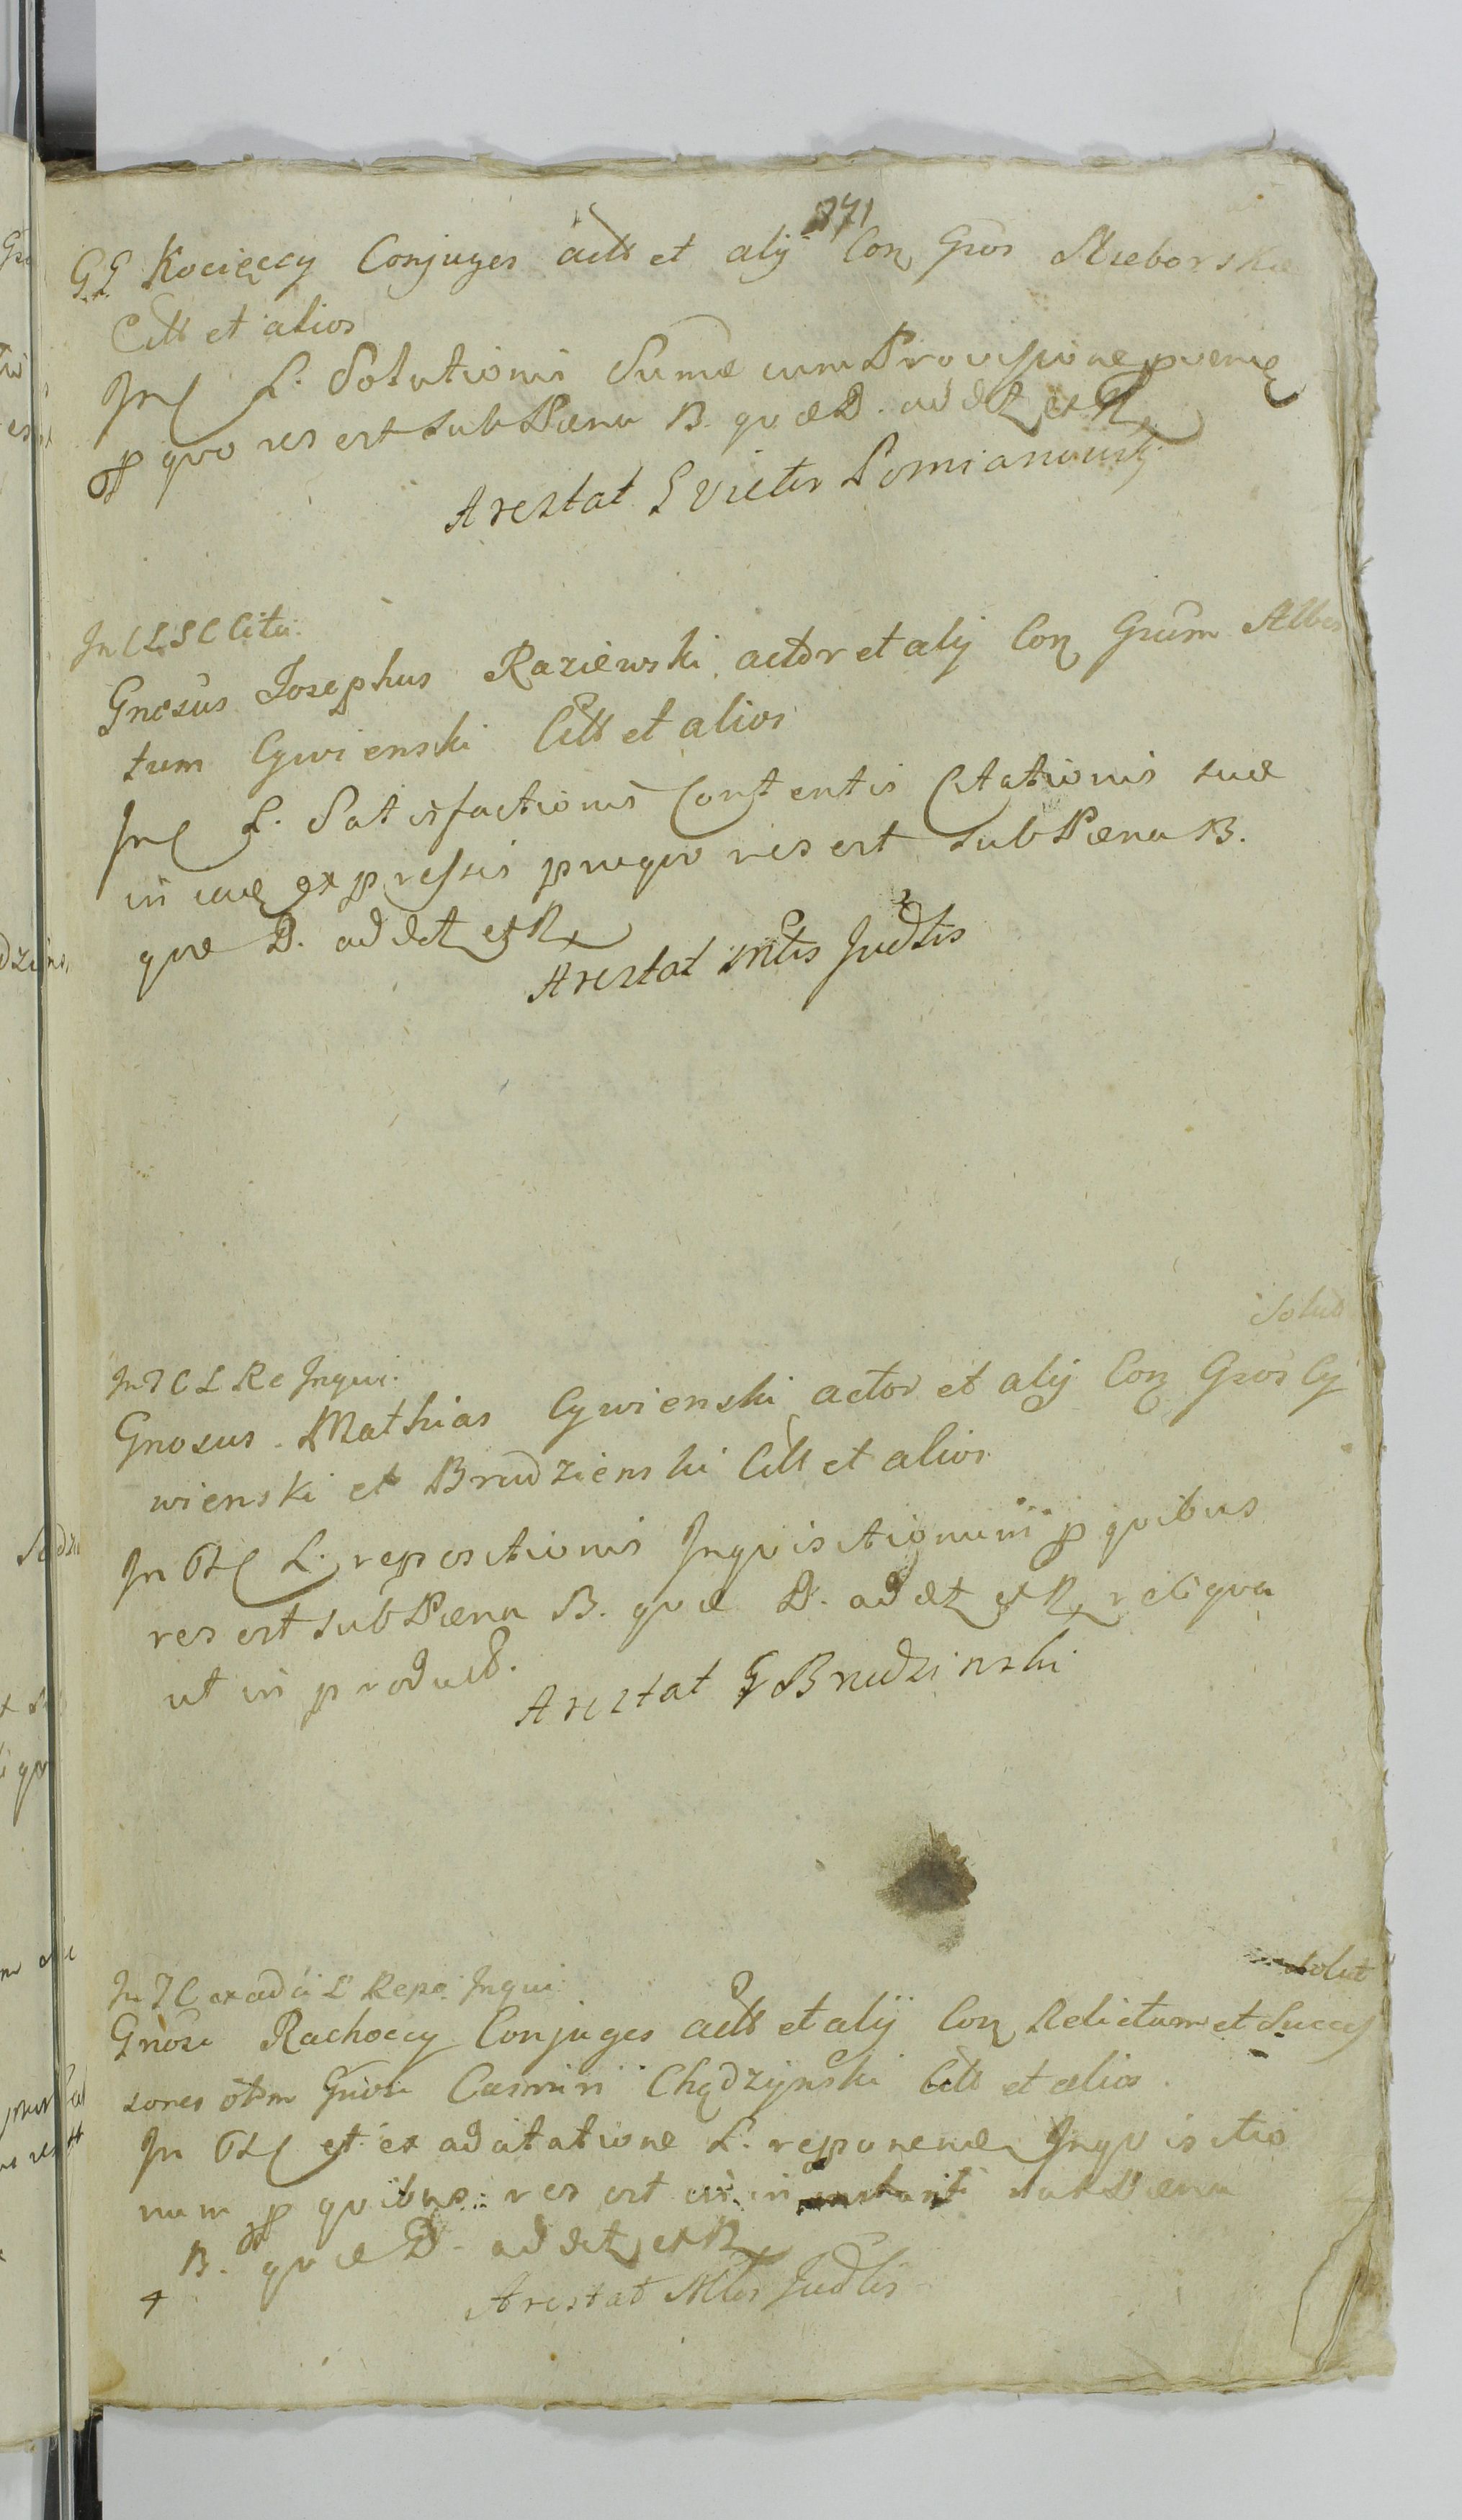 871
GG Kocięccy Conjuges actt et alij Con Gsos Nieborskie
Citt et alios
In C L. Solutionis Sumæ cum Provisione proveñ
p quo res est sub Pæna B. quæ D. ad det et R
Arestat G Victor Pomianowski
In C L S C Cita.
Gnosus Josephus Raziewski actor et alij Con Gsum Alber
tum Cywienski Citt et alios
In C L. Satisfactionis Contentis Citationis suæ
in eaq expressis proquo res est sub Pæna B.
quæ D. ad det et R
Arestat Mtis Judlis
Solut
In T C L Re Inqui.
Gnosus Mathias Cywienski actor et alij Con Gsos Cy
wienski et Brudzienski Citt et alios
In Tt C L. repositionis Inquisitionum p quibus
res est sub Pæna B. quæ D. ad det et R reliqua
ut in product.
Arestat G Brudzinski
Solut
In T C ex adci L Repo Inqui
Gnosi Rachoccy Conjuges actt et alij Con Relictam et Succes
sores otim Gnosi Casimiri Chądzyński Citt et alios.
In Tt C et ex adcitatione L. reponenda Inquisitio
num p quibus res est in instanti sub Pæna
B. quæ D. ad det et R
Arestat Mtis Judlis